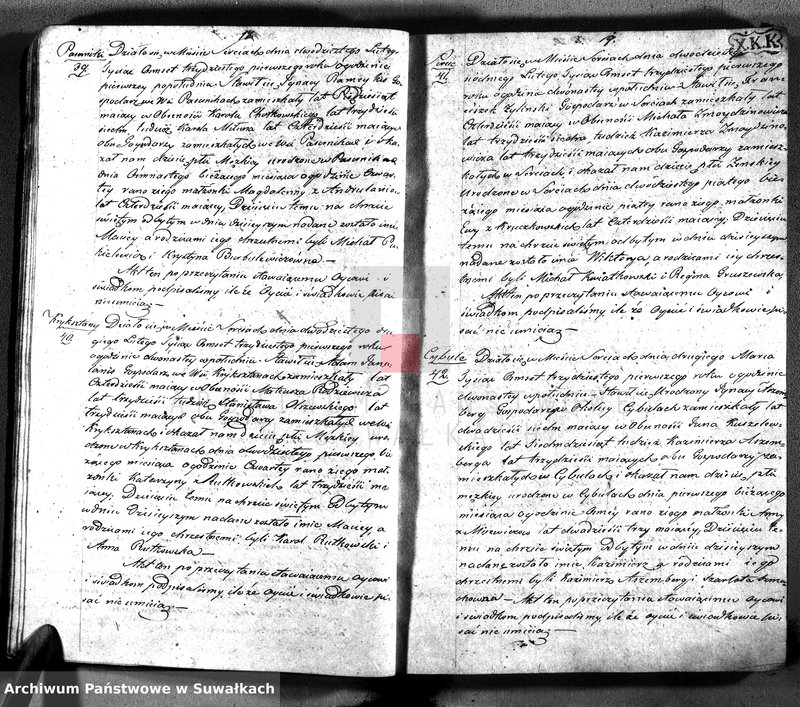 18.
Pasernik
39
Działo się w Mieście Sereiach dnia dwódziestego Lutego
Tysiąc Ośmset trzydziestego pierwszego roku o godzinie
pierwszey popołudniu Stawił się Ignacy
Gospodarz we Wsi Pasernikach zamieszkały lat
maiący w Obecności Karola Chotkowskiego lat trzydzieści
siedm tudzież Karola lat Czterdzieści maiących
obu Gospodarzy zamieszkałych we Wsi Pasernikach i oka-
zał nam dziecie płci Męzkiey urodzone w Pasernikach
dnia Ośmnastego bieżącego miesiąca o godzinie Czwar-
tey rano z iego małżonki Magdaleny z
lat Czterdzieści maiącey, Dziecięciu temu na chrzcie
świętym odbytym w dniu dzisieyszym nadane zostało imie
Maciey a rodzicami iego chrzestnemi byli Michał
i Krystyna
Akt ten po przeczytaniu stawaiącemu Oycowi i
świadkom podpisaliśmy, ile że Oyciec i świadkowie pisać
nie umieią
Kryksztany
40
Działo się w Mieście Sereiach dnia dwódziestego dru-
giego Lutego Tysiąc Ośmset trzydziestego pierwszego roku
o godzinie dwonastey w południe Stawił się Adam
Gospodarz we Wsi Kryksztanach zamieszkały lat
Czterdzieści maiący w Obecności Mateusza Rodziewicza
lat trzydzieści tudzież Stanisława Olszewskiego lat
trzydzieści maiących obu Gospodarzy zamieszkałych we Wsi
Kryksztanach i okazał nam dziecie płci Męzkiey uro-
dzone w Kryksztanach dnia dwódziestego pierwszego bie-
żącego miesiąca o godzinie Czwartey rano z iego mał-
żonki Katarzyny z Rutkowskich lat trzydzieści ma-
iącey, Dziecięciu temu na chrzcie świętym Odbytym
w dniu dzisieyszym nadane zostało imie Maciey a
rodzicami iego chrzestnemi byli Karol Rutkowski i
Anna Rutkowska
Akt ten po przeczytaniu stawaiącemu Oycowi
i świadkom podpisaliśmy, ile że Oyciec i świadkowie pi-
sać nie umieią
19.
X.K.K.
41
Działo się w Mieście Sereiach dnia dwódziestego
siódmego Lutego Tysiąc Ośmset trzydziestego pierwszego
roku o godzinie dwonastey w południe Stawił się Fran-
ciszek Żyliński Gospodarz w Sereiach zamieszkały lat
Czterdzieści maiący w Obecności Michała Żmoydzinowicza
lat trzydzieści siedm tudzież Kazimierza Żmoydzino-
wicza lat trzydzieści maiących obu Gospodarzy zamiesz-
kałych w Sereiach i okazał nam dziecie płci Żeńskiey
Urodzone w Sereiach dnia dwódziestego piątego bie-
żącego miesiąca o godzinie piątey rano z iego małżonki
Ewy z Kruczkowskich lat Czterdzieści maiącey, Dziecięciu
temu na chrzcie świętym odbytym w dniu dzisieyszym
nadane zostało imie Wiktorya a rodzicami iey chrzes-
tnemi byli Michał Kwiatkowski i Regina Gruszewska
Akt ten po przeczytaniu stawaiącemu Oycowi i
świadkom podpisaliśmy, ile że Oyciec i świadkowie pi-
sać nie umieią
Cybule
42
Działo się w Mieście Sereiach dnia drugiego Marca
Tysiąc Ośmset trzydziestego pierwszego roku o godzinie
dwonastey w południe Stawił się Urodzony Ignacy Aszem-
berg Gospodarz w Okolicy Cybulach zamieszkały lat
dwadzieścia siedm maiący w Obecności Jana Kuszelew-
skiego lat Siedmdziesiąt tudzież Kazimierza Aszem-
berga lat trzydzieści maiących obu Gospodarzy za-
mieszkałych w Cybulach i okazał nam dziecie płci
męzkiey urodzone w Cybulach dnia pierwszego bieżącego
miesiąca o godzinie rano z iego małżonki Anny
z lat dwadzieścia trzy maiącey, Dziecięciu te-
mu na chrzcie świętym Odbytym w dniu dzisieyszym
nadane zostało imie Kazimierz a rodzicami iego
chrzestnemi byli Kazimierz Aszemberg i Szarlota
Akt ten po przeczytaniu stawaiącemu Oycowi
i świadkom podpisaliśmy, ile że Oyciec i świadkowie pi-
sać nie umieią
Archiwum Państwowe w Suwałkach